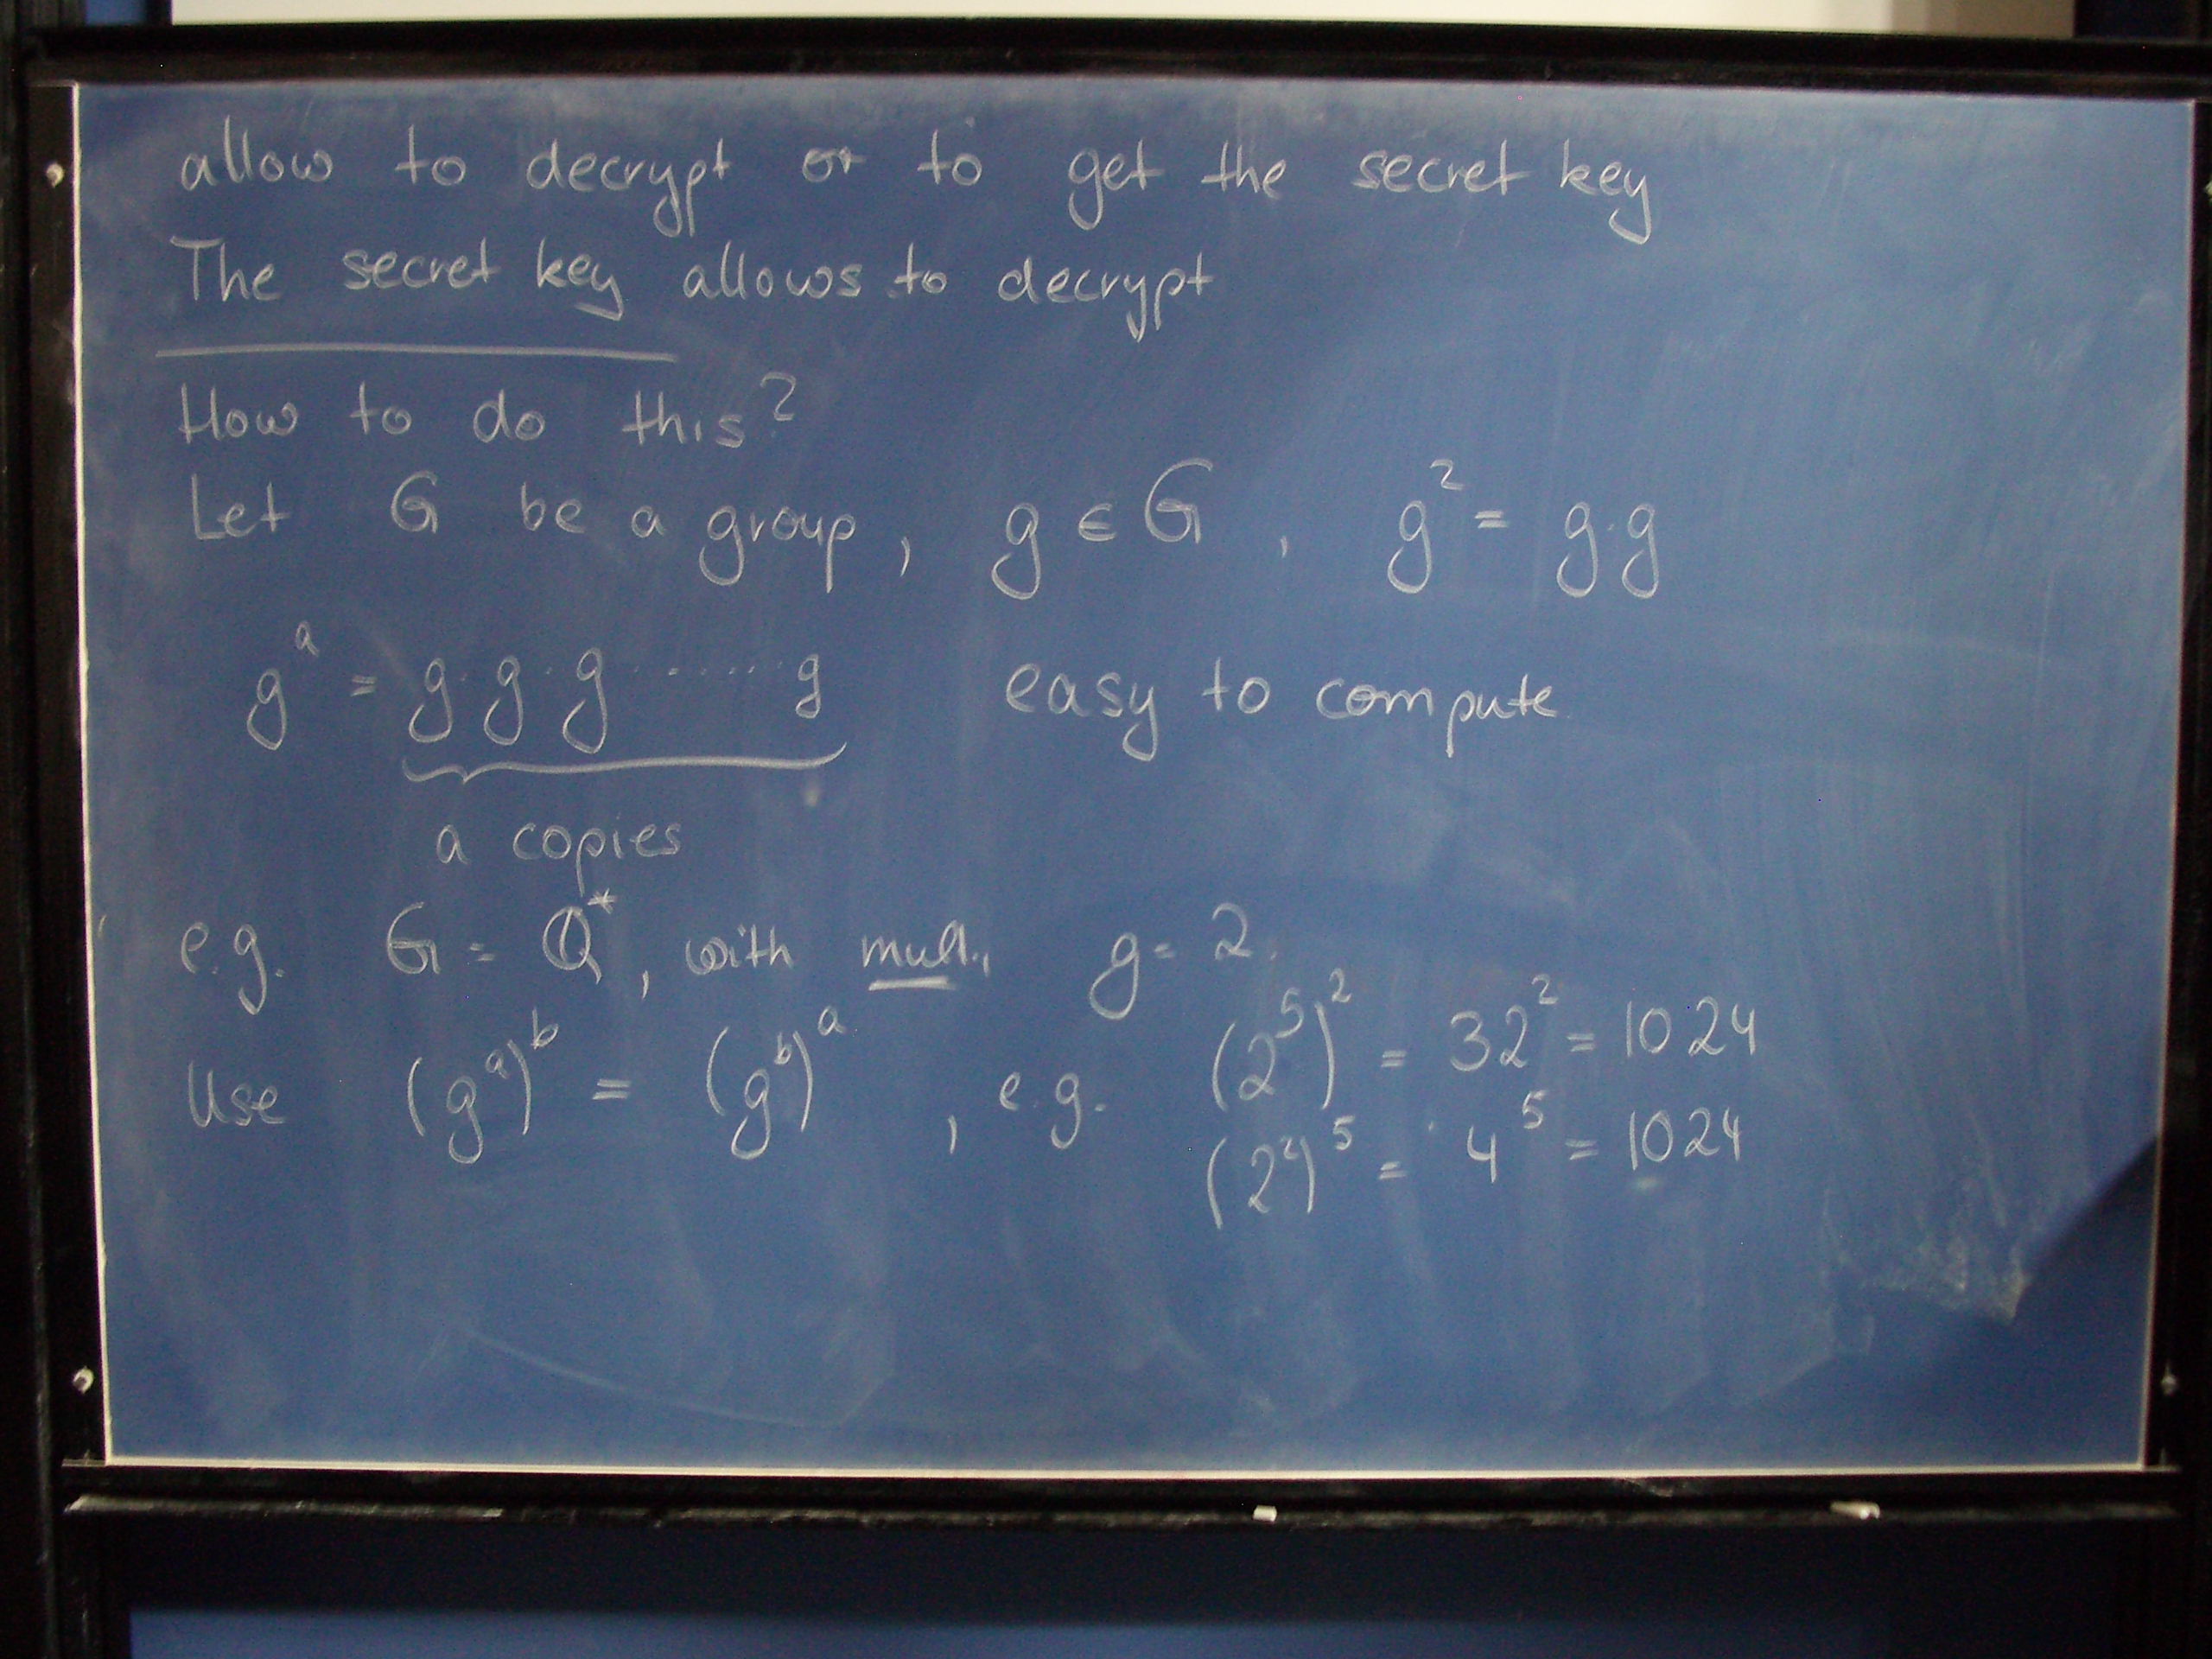 allow to decrypt or to get the secret key
The secret key allows to decrypt
How to do this?
Let G be a group, g ∈ G, g² = g·g
gᵃ = g·g·g ...... g easy to compute
a copies
e.g. G = Q*, with mult., g = 2.
Use (gᵃ)ᵇ = (gᵇ)ᵃ, e.g. (2⁵)² = 32² = 1024
(2²)⁵ = 4⁵ = 1024